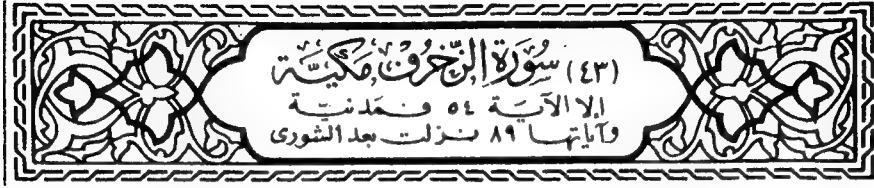 (٤٣) سُورَةِ الزُّخْرُفِ مَكِيَّة
إلا الآيَة ٥٤ فَمَدنيَّة
وآياتها ٨٩ نزلت بعد الشورى